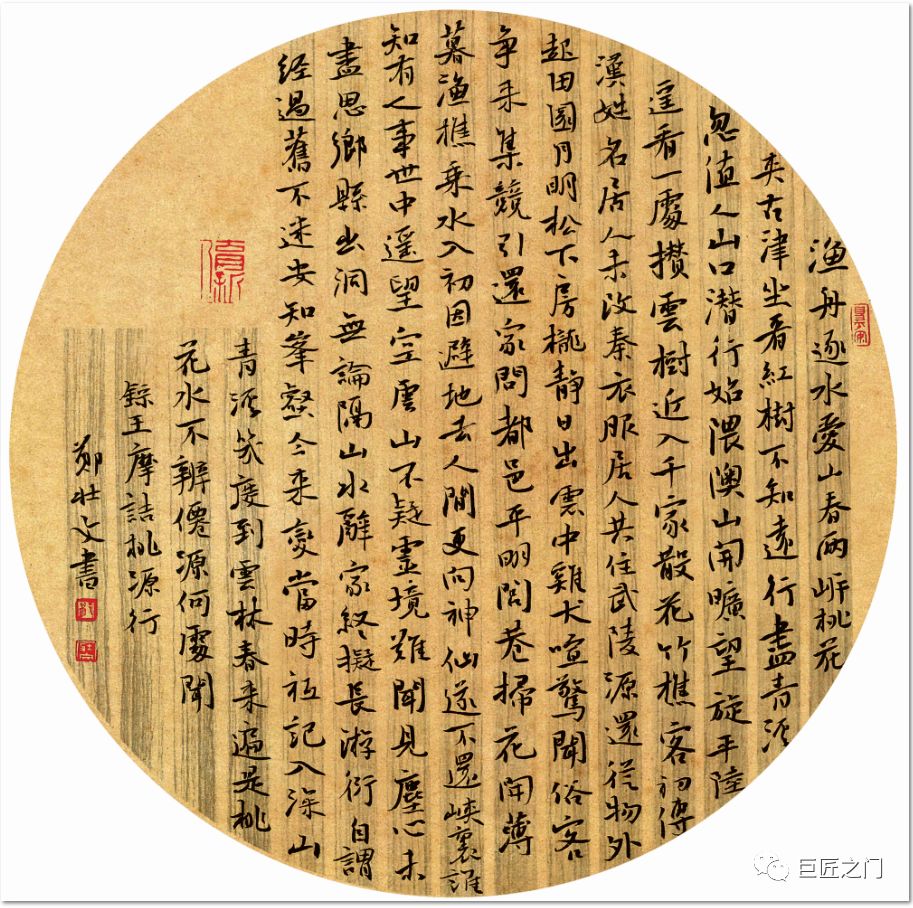 渔舟逐水愛山春兩岍桃花
夾古津坐看紅樹不知遠行盡青溪
忽值人山口潛行始隈澳山開曠望旋平陸
遥看一處攢雲樹近入千家散花竹樵客初傳
漢姓名居人未改秦衣服居人共住武陵源還從物外
起田園月明松下房櫳靜日出雲中雞犬喧驚聞俗客
争来集競引還家問都邑平明閭巷掃花開薄
暮渔樵乘水入初因避地去人間更向神仙遂不還峽裏誰
知有人事世中遥望空雲山不疑靈境難聞見塵心未
盡思鄉縣出洞無論隔山水辭家終擬長游衍自謂
经過舊不迷安知峯壑今来變當時衹記入深山
青溪幾度到雲林春来遍是桃
花水不辨僊源何處聞
錄王摩詰桃源行
鄭壯文書
巨匠之门